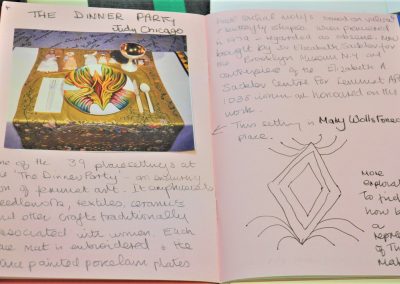 THE DINNER PARTY
Judy Chicago
one of the 39 place settings at
the 'The Dinner Party' - an
of feminist art. It
needlework, textiles, ceramics
and other crafts traditionally
associated with women. Each
mat is embroidered & the
are painted porcelain plates
have central motifs based on vulva
& butterfly shapes when
in 1979 & regarded as obscene. Now
bought by Dr Elizabeth Sackler for
the Brooklyn Museum N.Y. and
centrepiece of the Elizabeth A.
Sackler Centre for Feminist Art
1038 women are honoured on this
work.
This setting is Mary Wollstonecr
place.
More
explorat
to find
how b
a
repres
of T
Ma